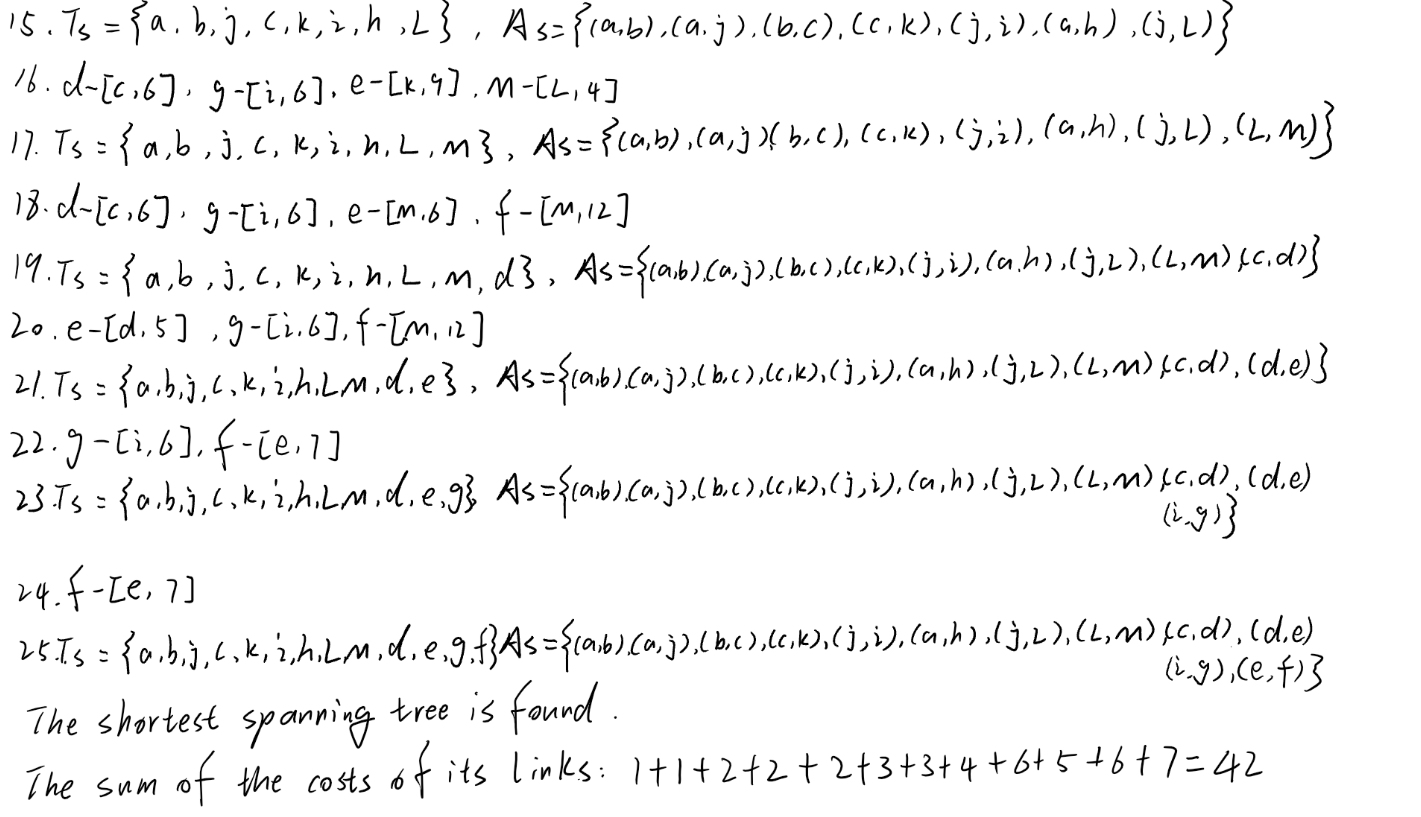 15. Ts = {a, b, j, c, k, i, h, L}, As={(a,b), (a,j), (b,c), (c,k), (j,i), (a,h), (j,L)}
16. d-[c,6], g-[i,6], e-[k,9], M-[L,4]
17. Ts = {a,b,j,c,k,i,h,L,m}, As={(a,b),(a,j)(b,c),(c,k),(j,i),(a,h),(j,L),(L,M)}
18. d-[c,6], g-[i,6], e-[m,6], f-[M,12]
19. Ts = {a,b,j,c,k,i,h,L,m,d}, As={(a,b),(a,j),(b,c),(c,k),(j,i),(a,h),(j,L),(L,m)(c,d)}
20. e-[d,5], g-[i,6], f-[M,12]
21. Ts = {a,b,j,c,k,i,h,L,m,d,e}, As={(a,b),(a,j),(b,c),(c,k),(j,i),(a,h),(j,L),(L,m)(c,d),(d,e)}
22. g-[i,6], f-[e,7]
23. Ts = {a,b,j,c,k,i,h,L,m,d,e,g} As={(a,b),(a,j),(b,c),(c,k),(j,i),(a,h),(j,L),(L,m)(c,d),(d,e)
(i,g)}
24. f-[e,7]
25. Ts = {a,b,j,c,k,i,h,L,m,d,e,g,f} As={(a,b),(a,j),(b,c),(c,k),(j,i),(a,h),(j,L),(L,m)(c,d),(d,e)
(i,g),(e,f)}
The shortest spanning tree is found.
The sum of the costs of its links: 1+1+2+2+2+3+3+4+6+5+6+7=42